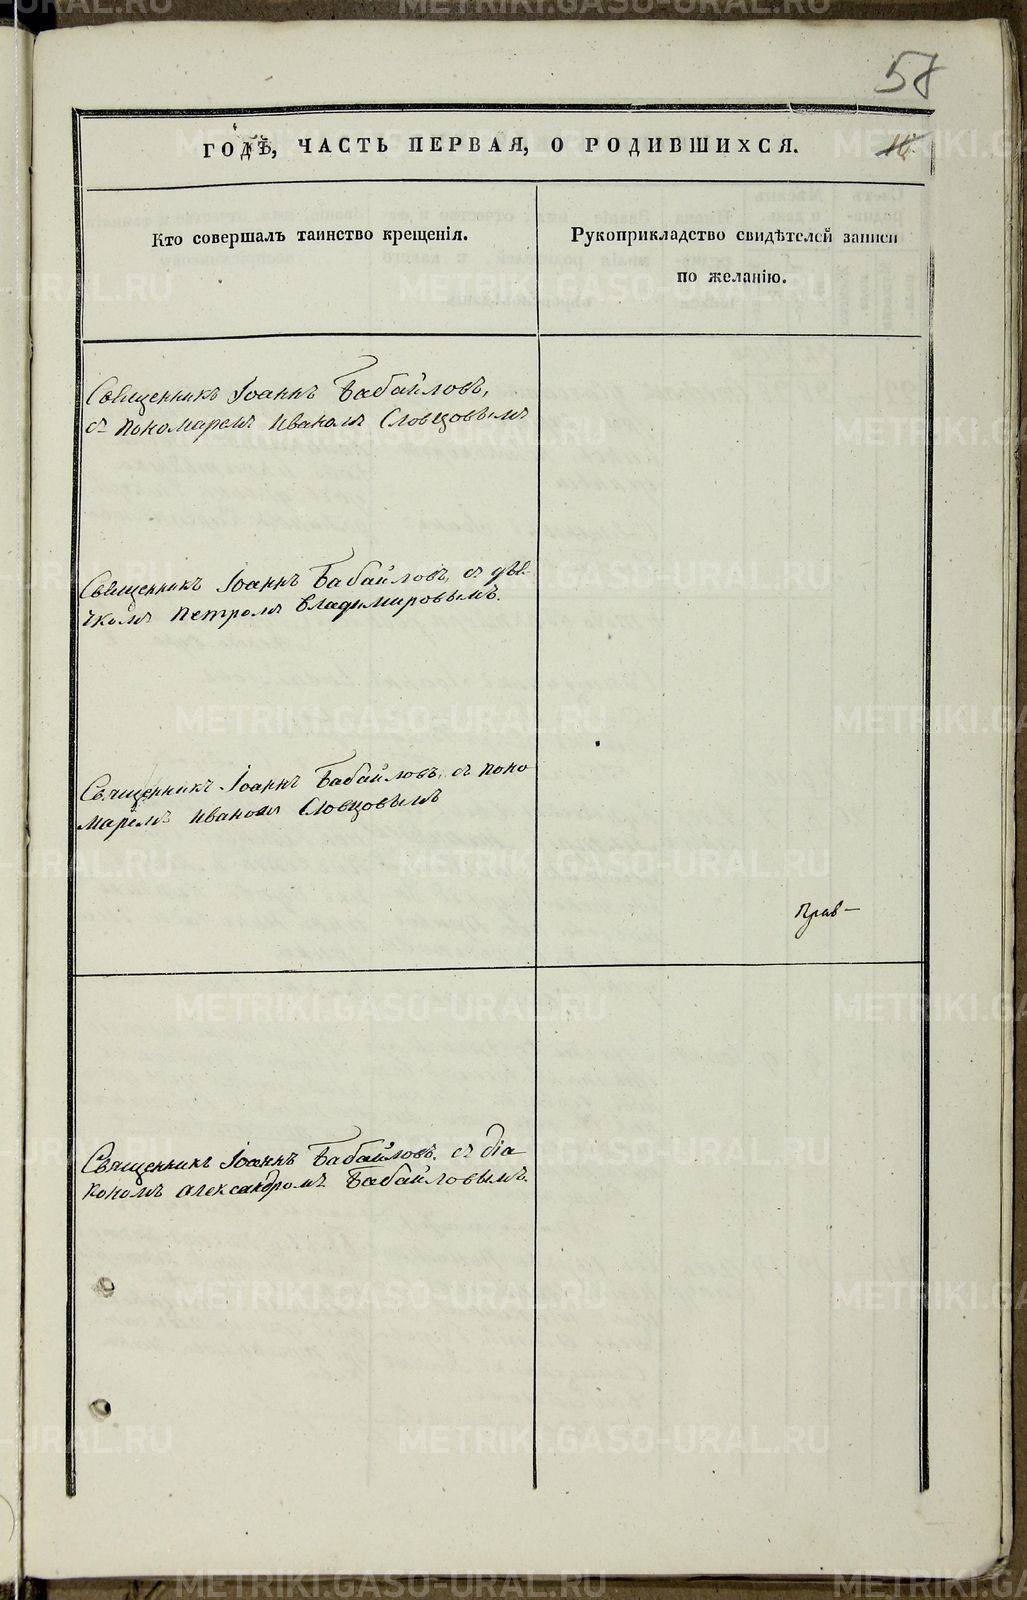 58
ГОДѢ, ЧАСТЬ ПЕРВАЯ, О РОДИВШИХСЯ.
Кто совершалъ таинство крещенія.
Рукоприкладство свидѣтелей записи
по желанію.
Священникъ Іоаннъ Бабайловъ,
съ пономаремъ Иваномъ Словцовымъ
Священникъ Іоаннъ Бабайловъ, съ дья-
чкомъ Петромъ Владимировымъ.
Священникъ Іоаннъ Бабайловъ, съ поно
маремъ Иваномъ Словцовымъ
Прав—
Священникъ Іоаннъ Бабайловъ. съ діа
кономъ Александромъ Бабайловымъ.
METRIKI.GASO-URAL.RU